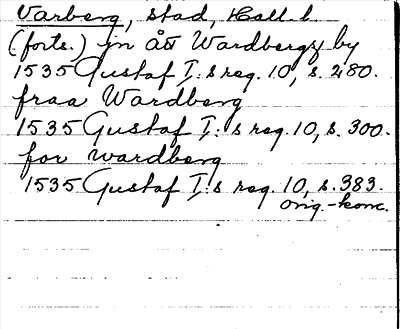 Varberg, stad, Hall. l.
(forts.) jn åtț Wardbergz by
1535 Gustaf I:s reg. 10, s. 280.
fraa Wardberg
1535 Gustaf I:s reg. 10, s. 300.
for wardberg
1535 Gustaf I:s reg. 10, s. 383.
orig.-konc.